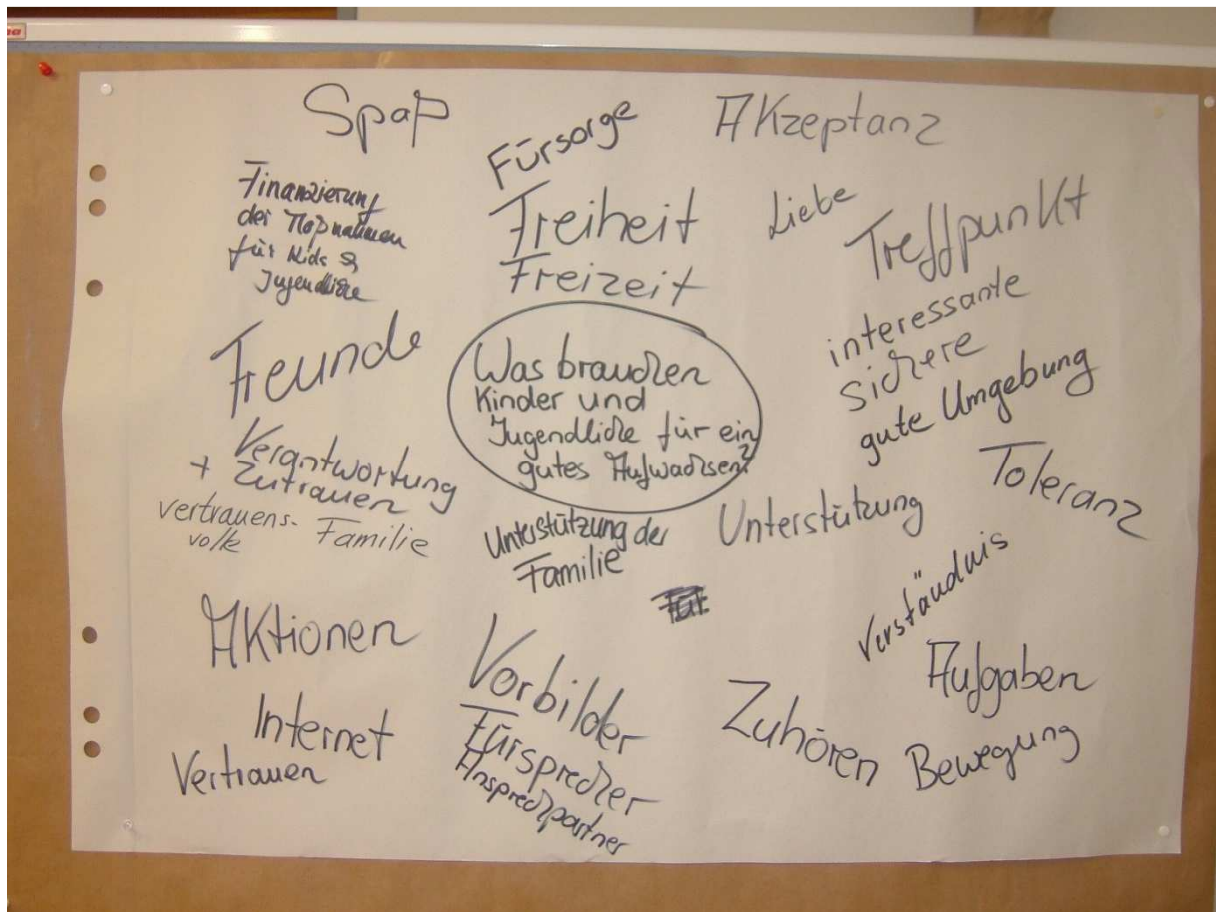 Spaß
Fürsorge
Akzeptanz
Finanzierung
der Maßnahmen
für Kids &
Jugendliche
Freiheit
Freizeit
Liebe
Treffpunkt
interessante
sichere
gute Umgebung
Freunde
Was brauchen
Kinder und
Jugendliche für ein
gutes Aufwachsen?
Verantwortung
+ Zutrauen
vertrauens-
volle Familie
Unterstützung der
Familie
Unterstützung
Toleranz
Für
Verständnis
Aktionen
Vorbilder
Fürsprecher
Ansprechpartner
Aufgaben
Internet
Vertrauen
Zuhören
Bewegung